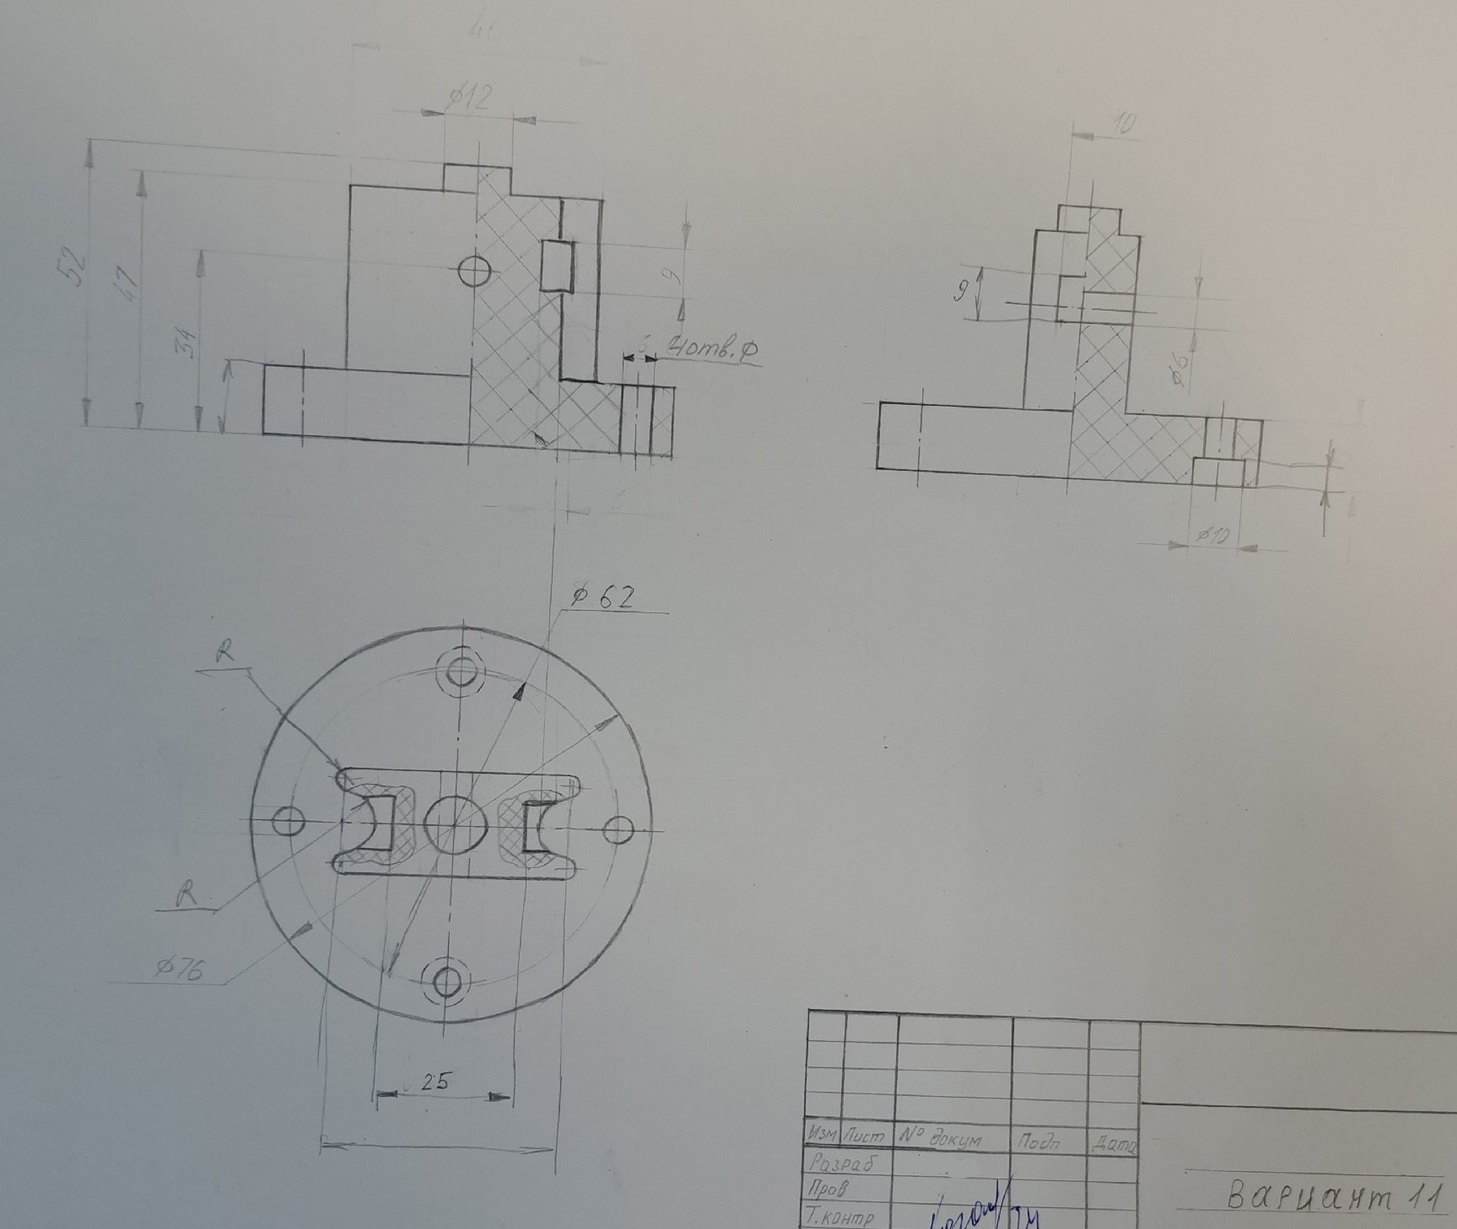 46
ϕ12
52
47
34
9
4отв.ϕ
10
9
ϕ6
ϕ10
ϕ62
R
R
ϕ76
25
Изм Лист № докум Подп Дата
Разраб
Пров
Т.контр
Вариант 11